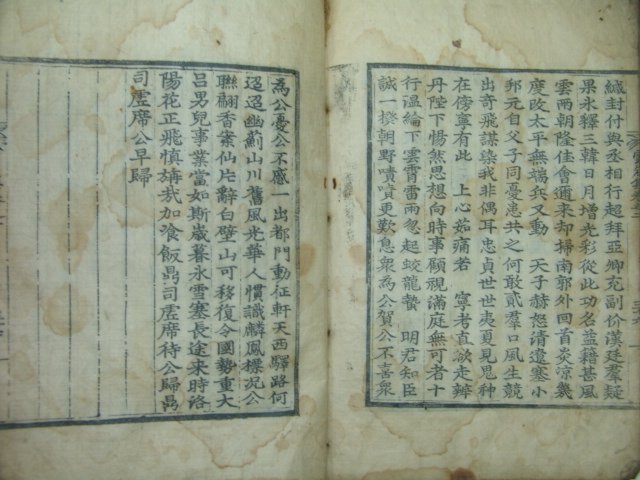 緘封付與丞相行超拜亞卿充副价漢廷羣疑
果氷釋三韓日月增光彩從此功名藹籍甚風
雲兩朝隆佳會邇來却掃南郭外回首炎凉幾
度改太平無端兵又動　天子赫怒請遺塞小
邦元自父子同憂患共之何敢貳羣口風生競
出奇飛謀染我非偶耳忠貞世世夷夏見思种
在傍寧有此　上心如痛若　寧考直欲走辨
丹陛下惕然思想向時事顧視滿庭無可者十
行溫綸下雲霄雷雨忽起蛟龍蟄　明君知臣
誠一揆朝野嘖嘖更歎息衆為公賀公不喜衆
為公憂公不慼一出都門動征軒天西驛路何
迢迢幽薊山川舊風光華人慣識麟鳳標況公
聯翩香案仙片辭白璧山可移復令國勢重大
呂男兒事業當如斯歲暮氷雪塞長途来時洛
陽花正飛慎旃哉加飡飯爲司虛席待公歸爲
司虛席公早歸